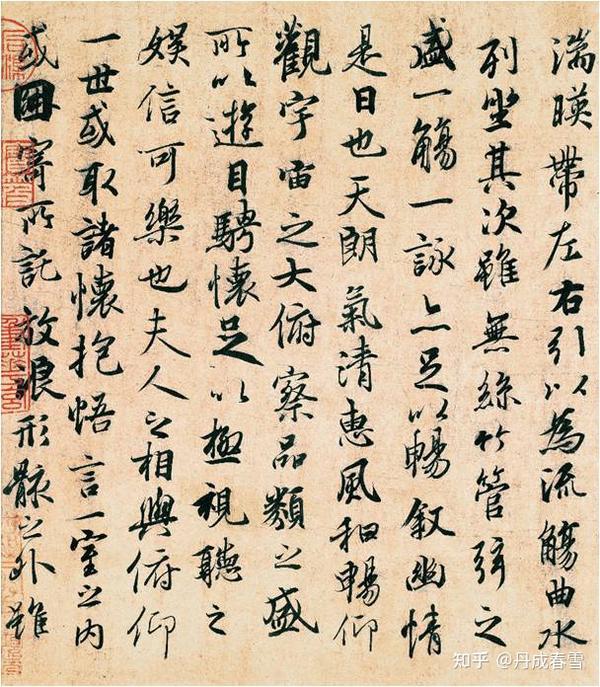 湍暎帶左右引以為流觴曲水
列坐其次雖無絲竹管弦之
盛一觴一詠亦足以暢敘幽情
是日也天朗氣清惠風和暢仰
觀宇宙之大俯察品類之盛
所以遊目騁懷足以極視聽之
娛信可樂也夫人之相與俯仰
一世或取諸懷抱悟言一室之內
或因寄所託放浪形骸之外雖
知乎 @丹成春雪